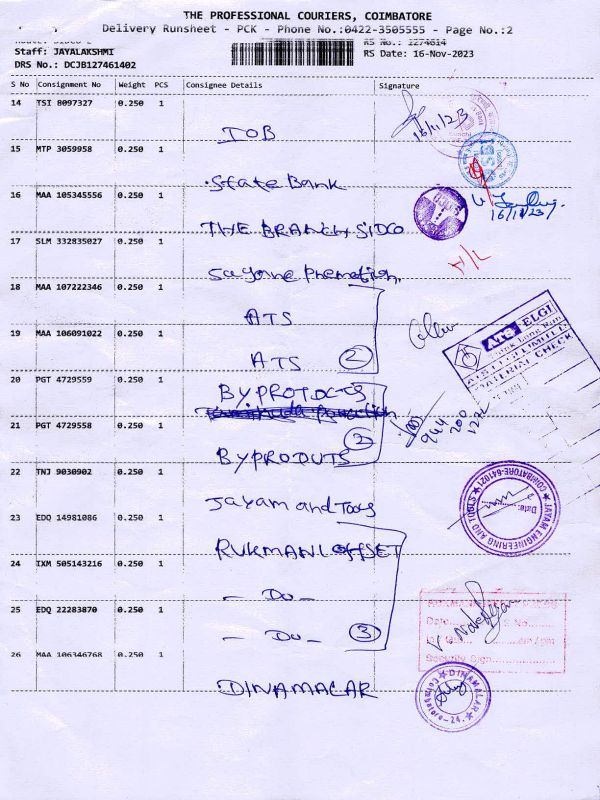 THE PROFESSIONAL COURIERS, COIMBATORE
Delivery Runsheet - PCK - Phone No.:0422-3505555 - Page No.:2
RS No.: 1274614
Staff: JAYALAKSHMI
RS Date: 16-Nov-2023
DRS No.: DCJB127461402
S No Consignment No Weight PCS Consignee Details Signature
14 TSI 8097327 0.250 1
IOB
16/11/23
15 MTP 3059958 0.250 1
State Bank
16 MAA 105345556 0.250 1
THE BRANCH SIDCO
16/11/23
17 SLM 332835027 0.250 1
Sayone Promotion.
H/L
18 MAA 107222346 0.250 1
ATS
ATS ELGI
MATERIAL CHECK
19 MAA 106091022 0.250 1
ATS 2
20 PGT 4729559 0.250 1
BYPROTOCTS
944 200
21 PGT 4729558 0.250 1
2
BYPRODUTS
22 TNJ 9030902 0.250 1
Jayam and Tools
JAYAM ENGINEERING AND TOOLS
COIMBATORE-641021
Date:
23 EDQ 14981086 0.250 1
RUKMANI OFFSET
24 IXM 505143216 0.250 1
- Do -
25 EDQ 22283870 0.250 1
- Do - 3
Date
S. No
am/pm
Security Sign
26 MAA 106346768 0.250 1
DINAMALAR
DINAMALAR
Coimbatore - 24.